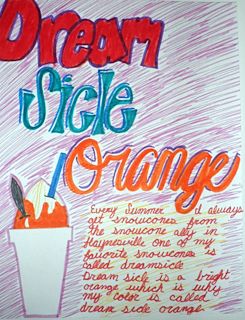 Dream
Sicle
Orange
Every Summer I'd always
get snowcones from
the snowcone ally in
Haynesville one of my
favorite snowcones is
called dreamsicle
Dream sicle is a bright
orange which is why
my color is called
dream sicle orange.